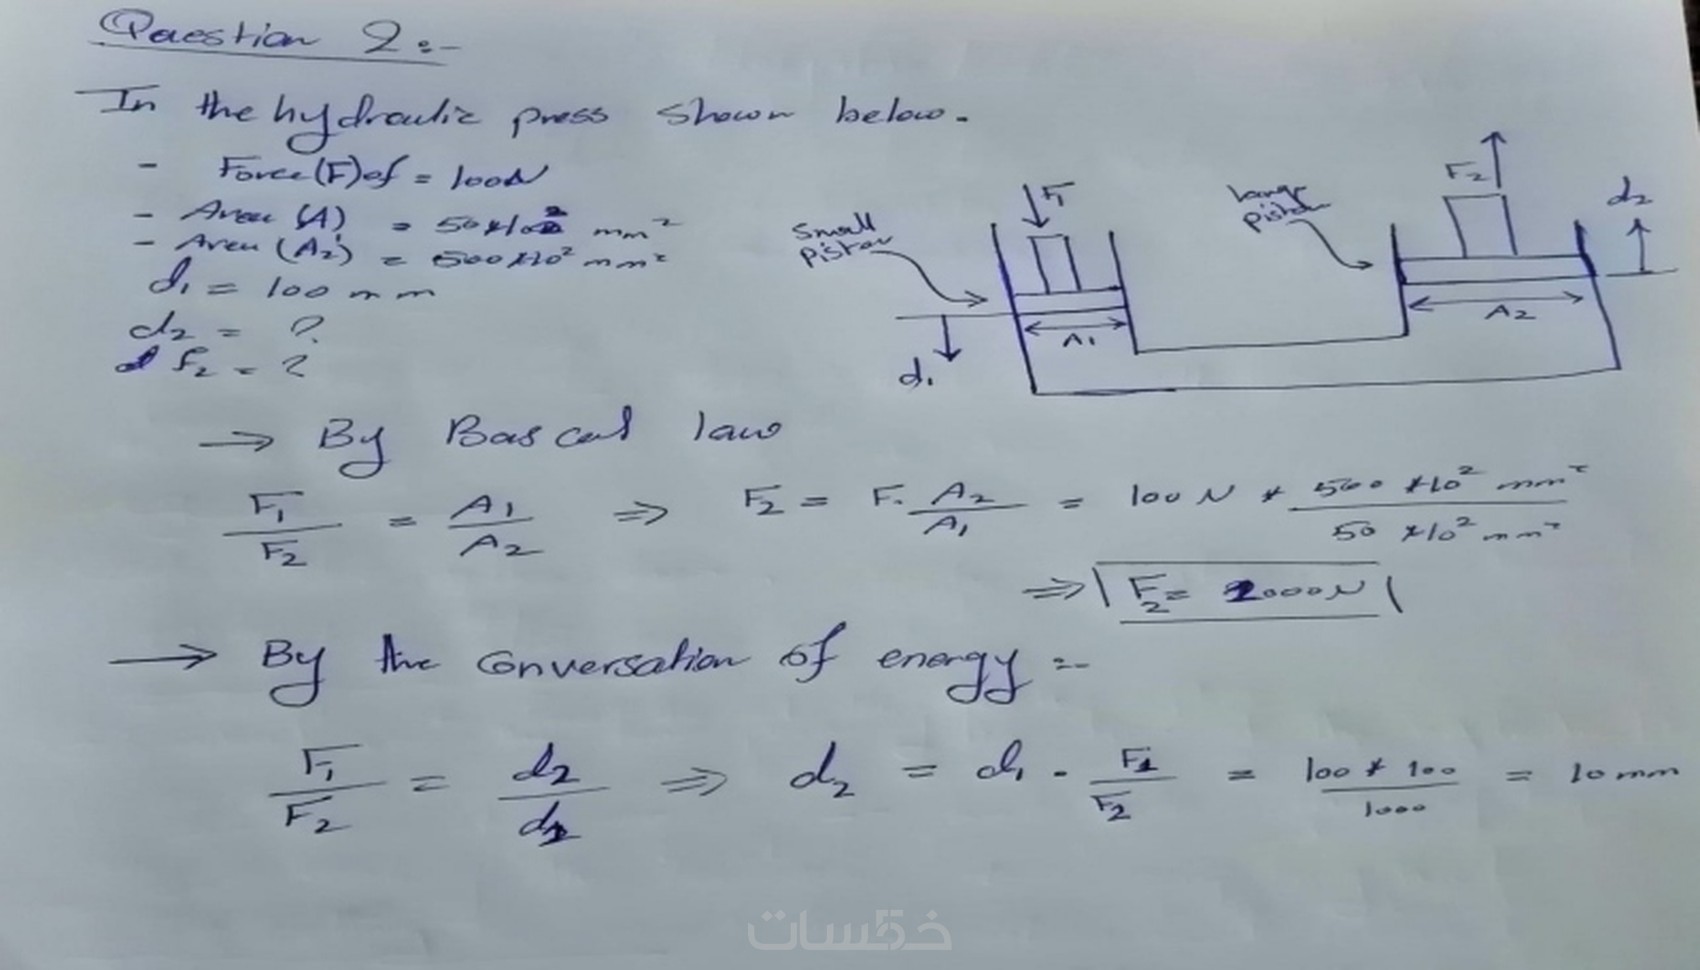 Question 2:-
In the hydraulic press shown below.
- Force (F) of = 100N
- Area (A) = 50*10² mm²
- Area (A2) = 500*10² mm²
d1 = 100 mm
d2 = ?
F2 = ?
F1
small piston
d1
A1
large piston
F2
d2
A2
→ By Bascal law
F1/F2 = A1/A2 ⇒ F2 = F. A2/A1 = 100 N * 500 *10² mm² / 50 *10² mm²
⇒ F2 = 1000N
→ By the Conversation of energy :-
F1/F2 = d2/d1 ⇒ d2 = d1 . F1/F2 = 100 * 100 / 1000 = 10 mm
خمسات